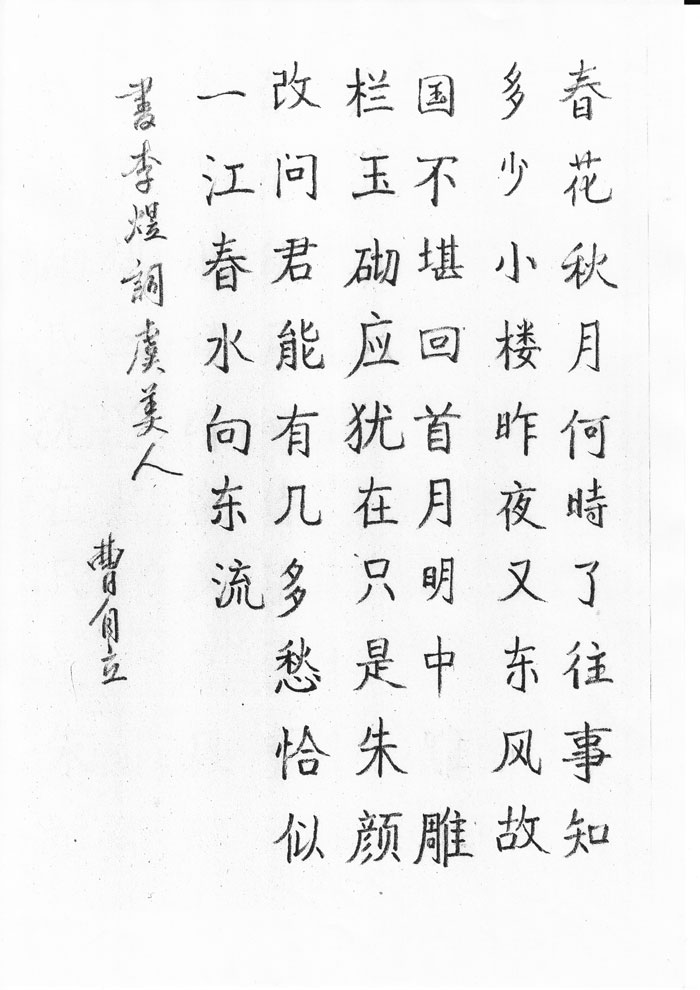 春花秋月何時了往事知
多少小楼昨夜又东风故
国不堪回首月明中雕
栏玉砌应犹在只是朱颜
改问君能有几多愁恰似
一江春水向东流
書李煜詞虞美人
曹自立